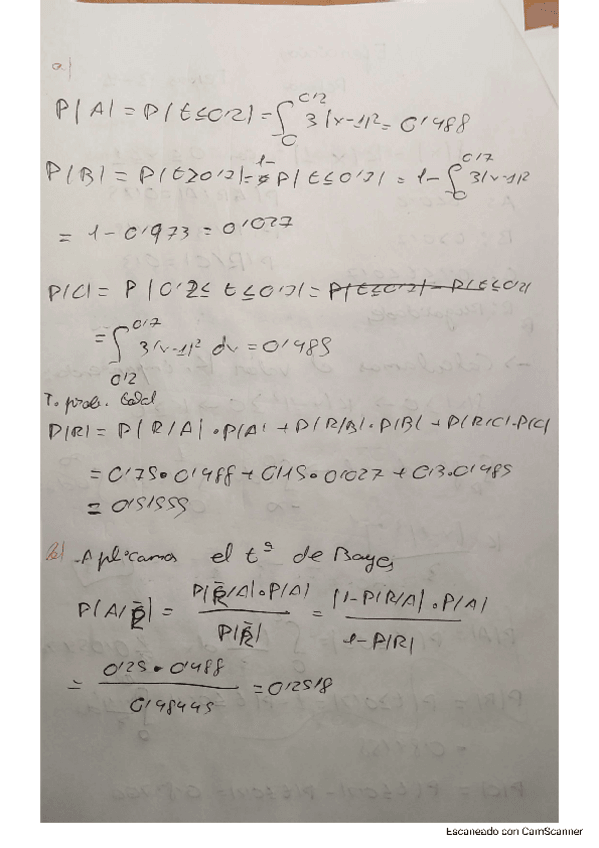 a)
P(A) = P(t≤0'2) = ∫₀^0'2 3(x-1)² = 0'488
P(B) = P(t≥0'7) = 1- P(t≤0'7) = 1- ∫₀^0'7 3(x-1)²
= 1-0'973 = 0'027
P(C) = P(0'2≤ t ≤0'7) = P(t≤0'7) - P(t≤0'2)
= ∫_0'2^0'7 3(x-1)² dx = 0'485
T. prob. total
P(R) = P(R/A)·P(A) + P(R/B)·P(B) + P(R/C)·P(C)
= 0'75·0'488 + 0'15·0'027 + 0'3·0'485
= 0'51555
b) Aplicamos el tª de Bayes
P(A/R̄) = P(R̄/A)·P(A) / P(R̄) = (1-P(R/A))·P(A) / 1-P(R)
= 0'25·0'488 / 0'48445 = 0'2518
Escaneado con CamScanner